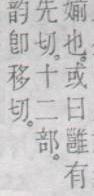 嫺也。或曰雖有
先切。十二部。
韵卽移切。